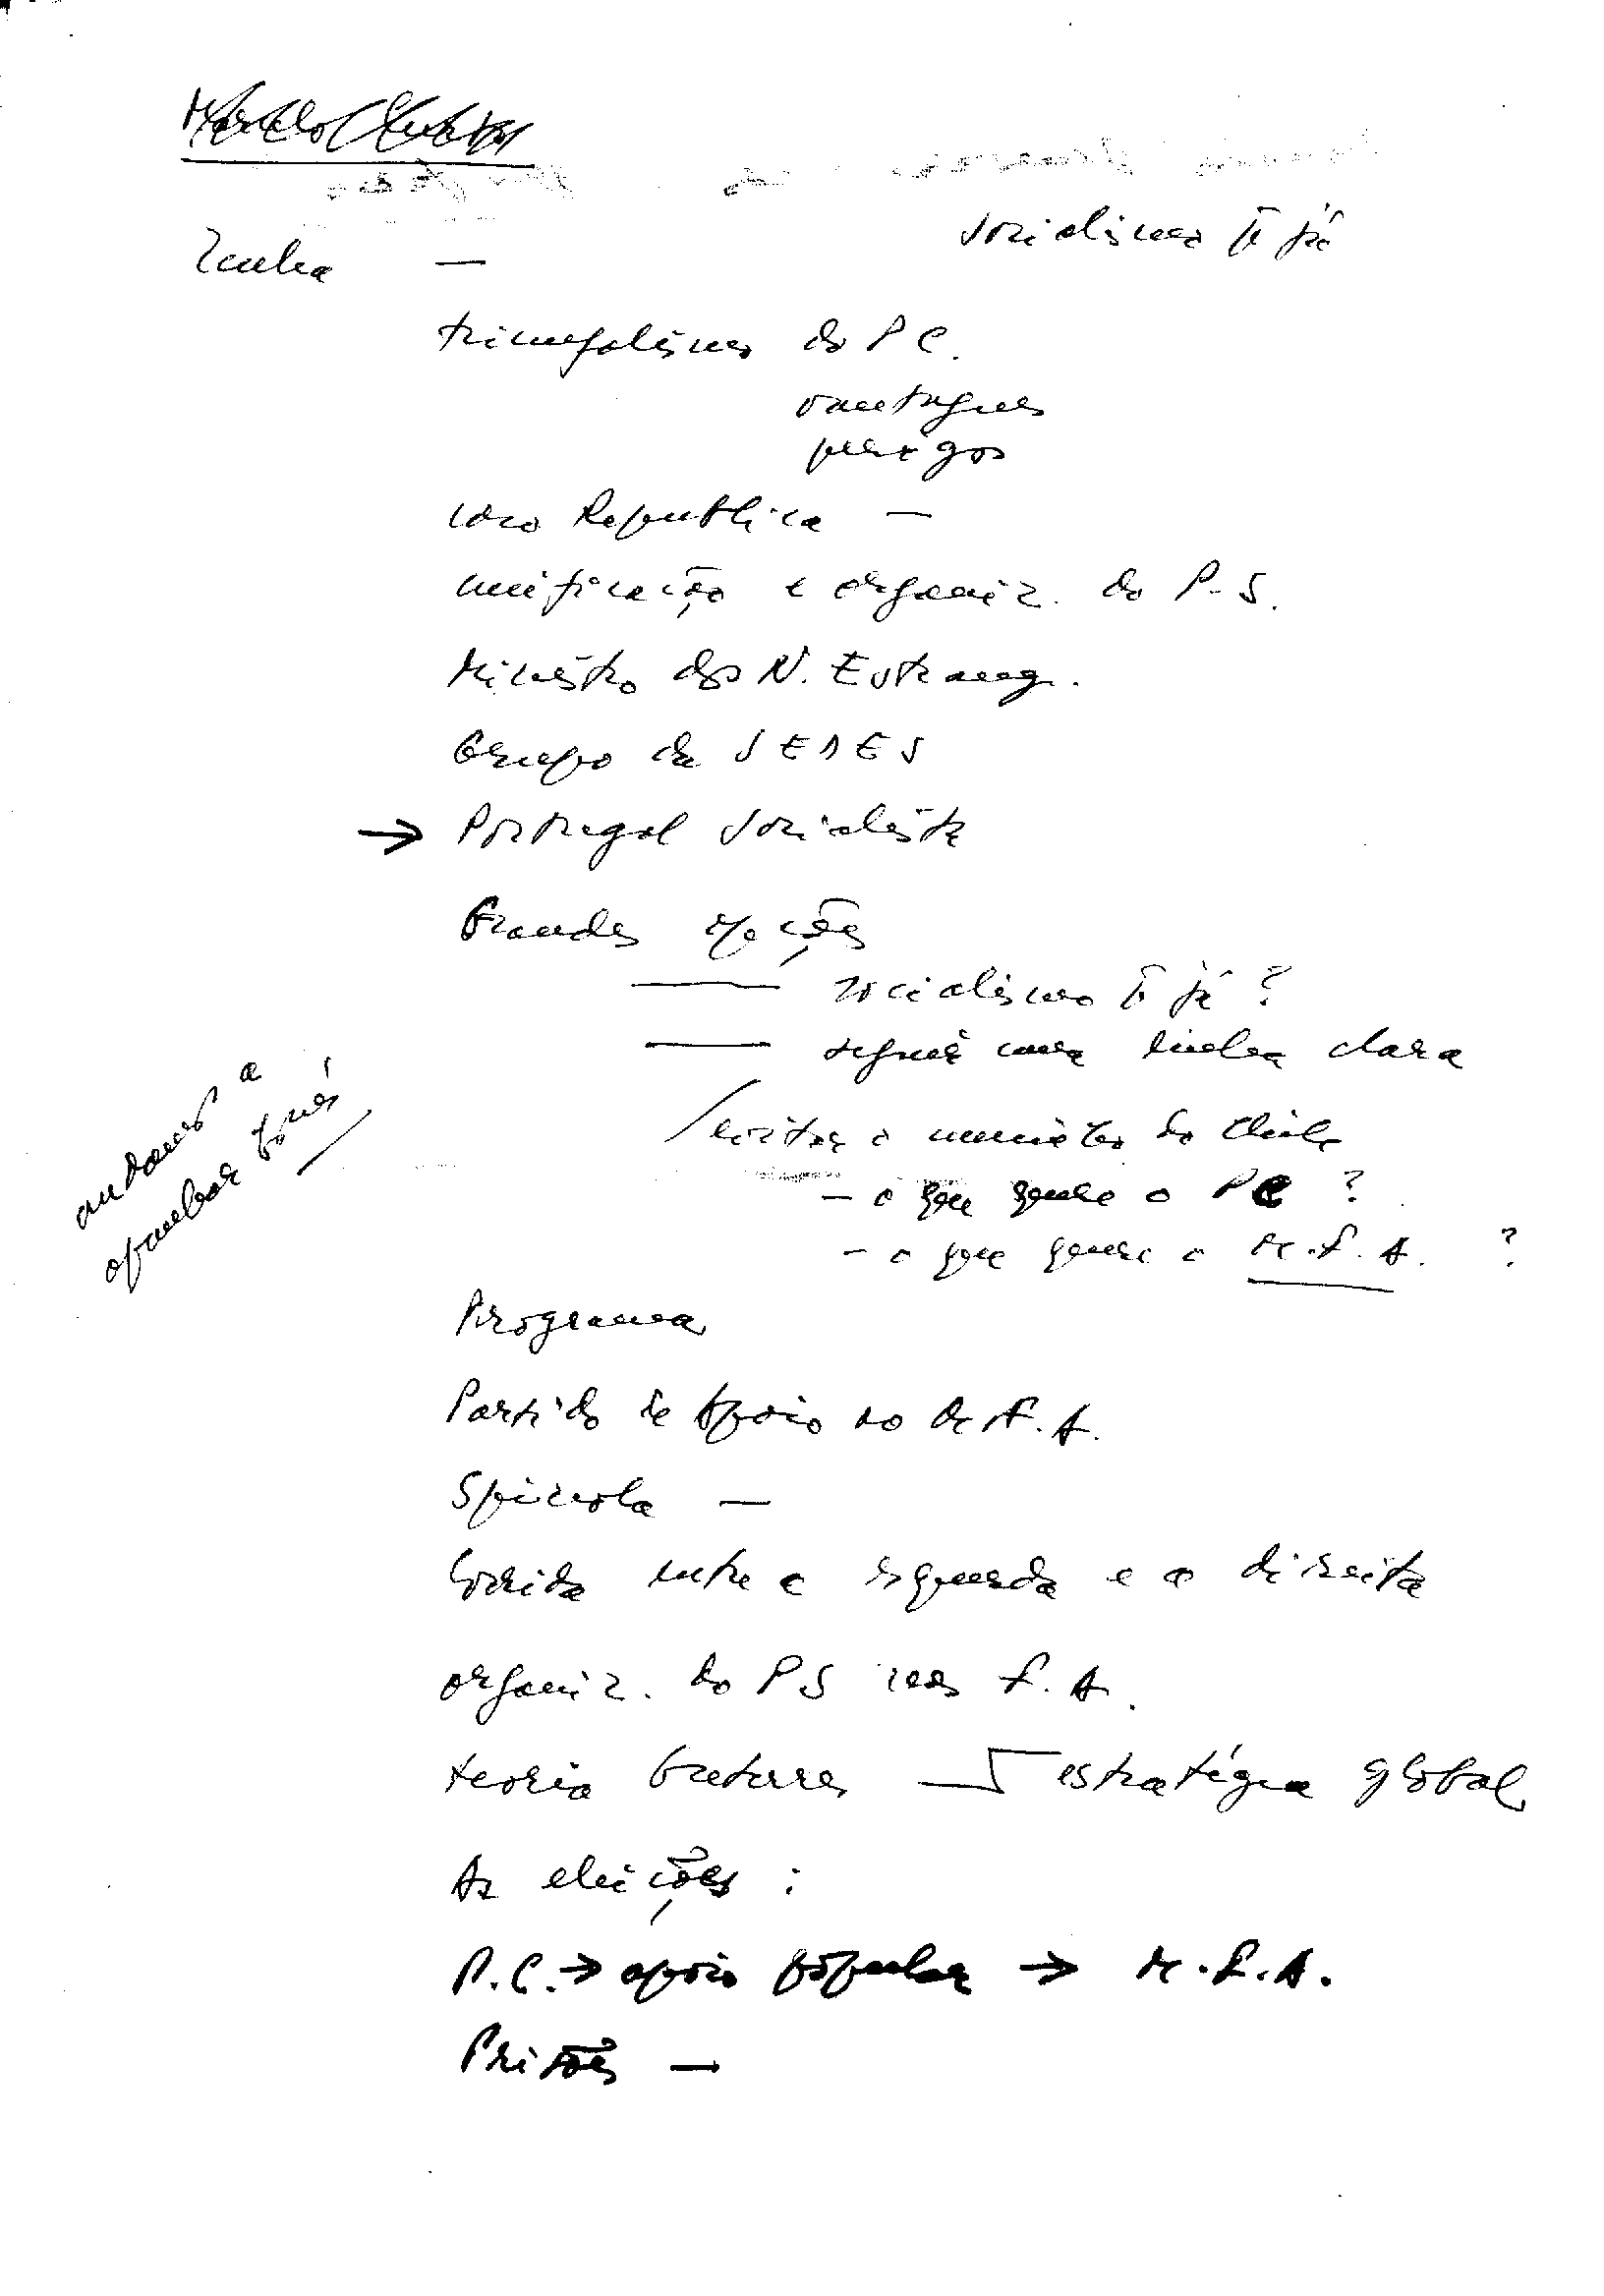 Zenha —
socialismo p. já
triunfalismo do P C.
vantagens
perigos
caso Republica —
unificação e organiz. do P. S.
Ministro dos N. Estrang.
Grupo da SEDES
→ Portugal Socialista
Grandes opções
— socialismo p. já ?
— seguir uma linha clara
evitar o do Chile
– o que quere o PC ?
– o que quere o M.F.A. ?
andamos a
apanhar
Programa
Partido de Apoio ao M.F.A.
Spinola —
Corrida entre a esquerda e a direita
organiz. do PS nas F.A.
teoria estratégia global
As eleições :
P.C. → apoio popular → M.F.A.
Prisões —